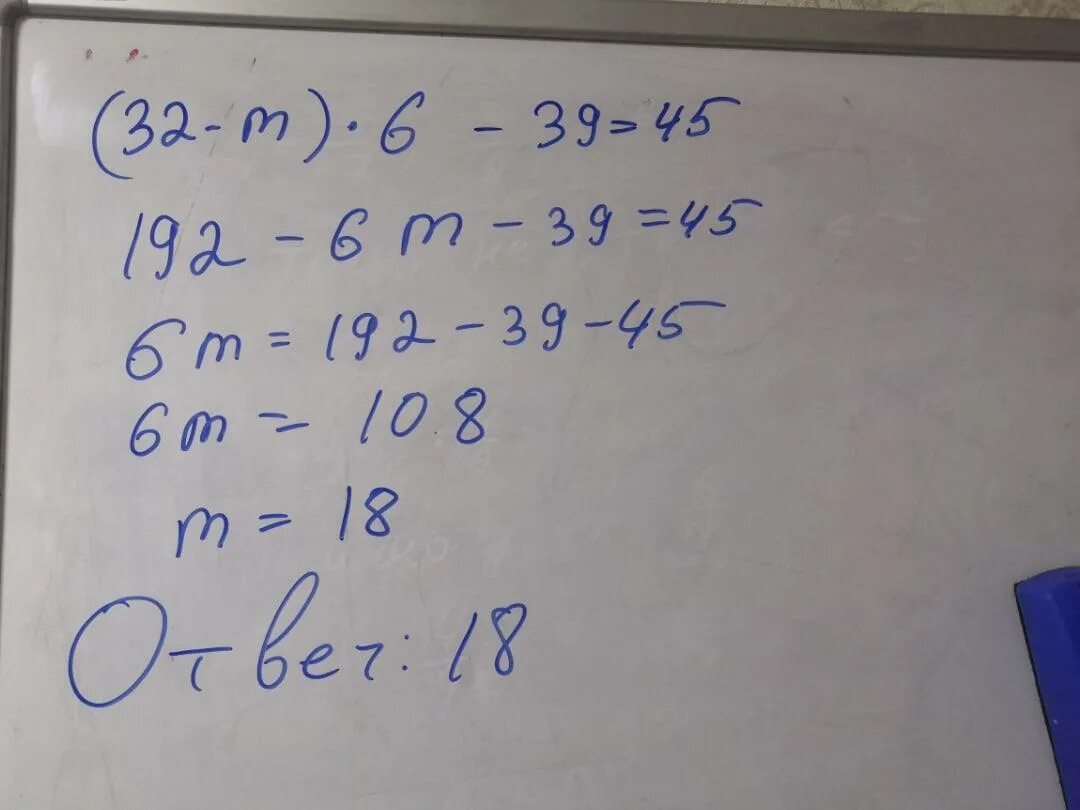 (32-m)·6 - 39=45
192 - 6m - 39=45
6m = 192-39-45
6m = 108
m = 18
Ответ: 18